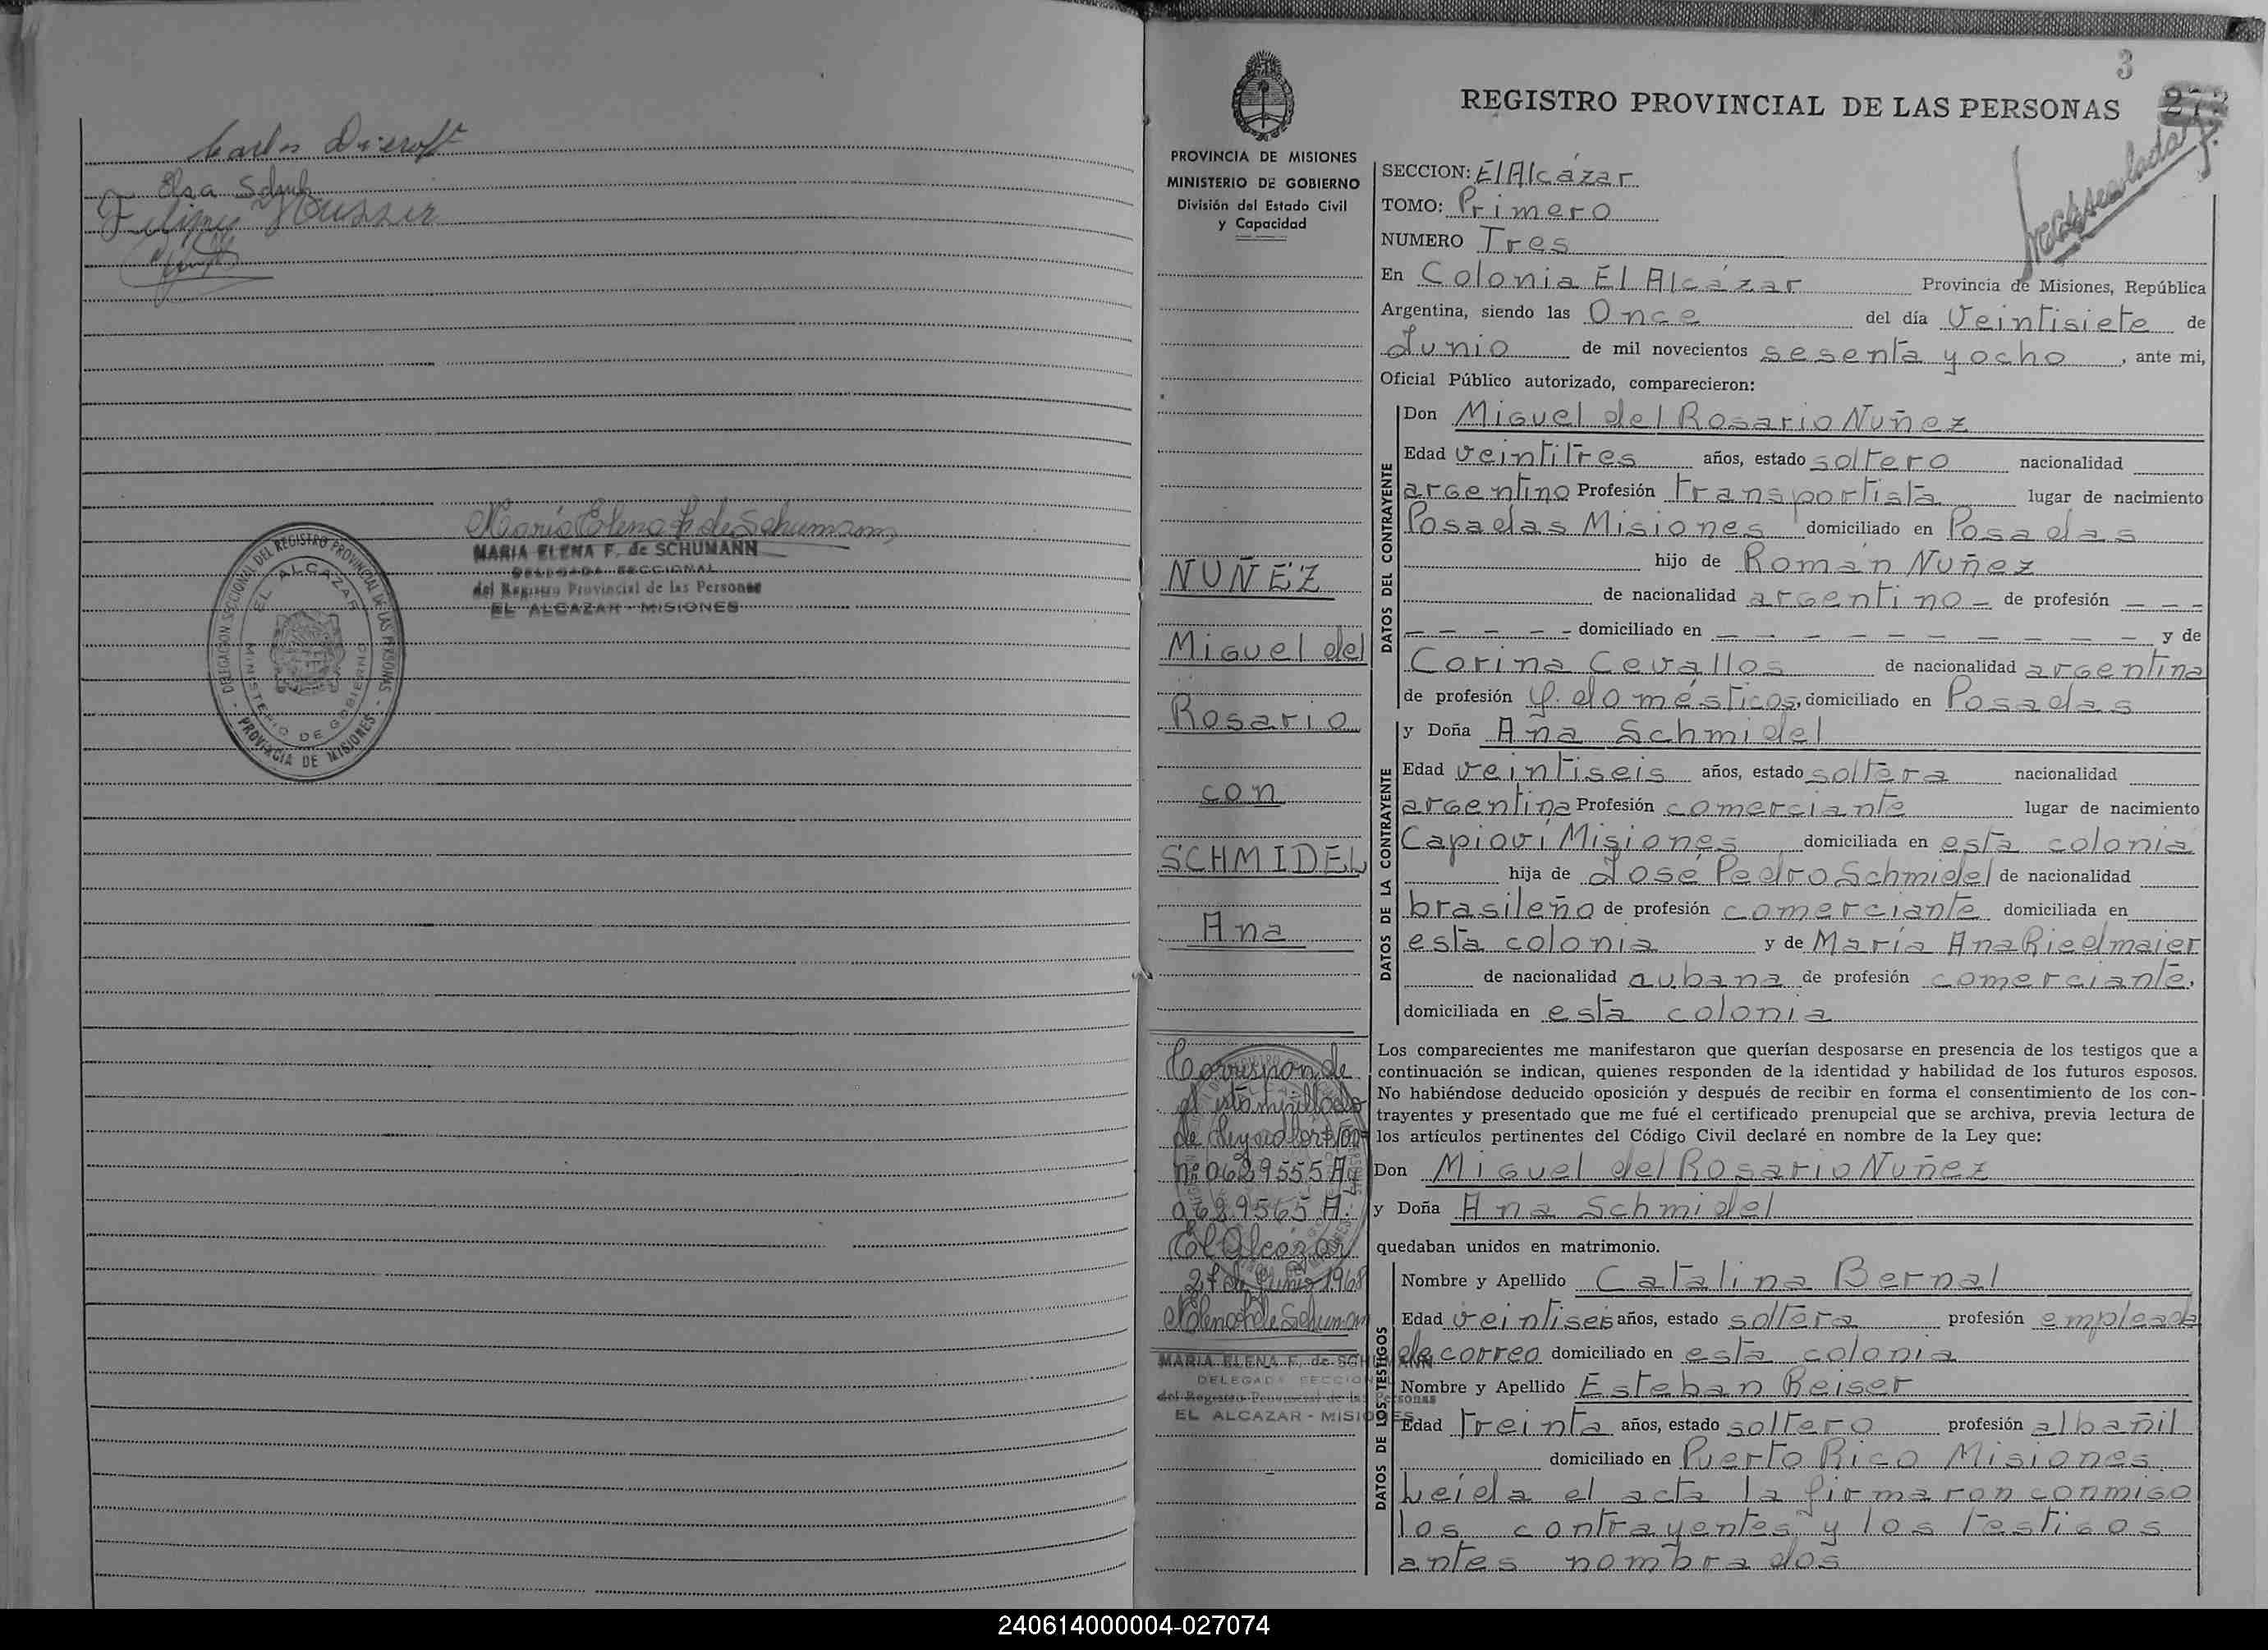 Carlos
Elsa
MARIA ELENA F. de SCHUMANN
DELEGADA SECCIONAL
del Registro Provincial de las Personas
EL ALCAZAR - MISIONES
DELEGACION SECCIONAL DEL REGISTRO PROVINCIAL DE LAS PERSONAS
- PROVINCIA DE MISIONES -
EL ALCAZAR
MINISTERIO DE GOBIERNO
3
REGISTRO PROVINCIAL DE LAS PERSONAS
PROVINCIA DE MISIONES
MINISTERIO DE GOBIERNO
División del Estado Civil
y Capacidad
NUÑEZ
Miguel del
Rosario
con
SCHMIDEL
Ana
Corresponde
el estampillado
de Ley
nº 0689555 A y
0689565 A.
El Alcázar
27 de Junio 1968
MARIA ELENA F. de SCHUMANN
DELEGADA SECCIONAL
del Registro Provincial de las Personas
EL ALCAZAR - MISIONES
SECCION: El Alcázar
TOMO: Primero
NUMERO Tres
En Colonia El Alcázar Provincia de Misiones, República
Argentina, siendo las Once del día Veintisiete de
Junio de mil novecientos sesenta y ocho, ante mi,
Oficial Público autorizado, comparecieron:
DATOS DEL CONTRAYENTE
Don Miguel del Rosario Nuñez
Edad veintitres años, estado soltero nacionalidad
argentino Profesión transportista lugar de nacimiento
Posadas Misiones domiciliado en Posadas
hijo de Román Nuñez
de nacionalidad argentino - de profesión - - -
- - - - - domiciliado en - - - - - - - - - y de
Corina Cevallos de nacionalidad argentina
de profesión q. domésticos, domiciliado en Posadas
DATOS DE LA CONTRAYENTE
y Doña Ana Schmidel
Edad veintiseis años, estado soltera nacionalidad
argentina Profesión comerciante lugar de nacimiento
Capioví Misiones domiciliada en esta colonia
hija de José Pedro Schmidel de nacionalidad
brasileño de profesión comerciante domiciliada en
esta colonia y de María Ana Riedmaier
de nacionalidad de profesión comerciante,
domiciliada en esta colonia
Los comparecientes me manifestaron que querían desposarse en presencia de los testigos que a
continuación se indican, quienes responden de la identidad y habilidad de los futuros esposos.
No habiéndose deducido oposición y después de recibir en forma el consentimiento de los con-
trayentes y presentado que me fué el certificado prenupcial que se archiva, previa lectura de
los artículos pertinentes del Código Civil declaré en nombre de la Ley que:
Don Miguel del Rosario Nuñez
y Doña Ana Schmidel
quedaban unidos en matrimonio.
DATOS DE LOS TESTIGOS
Nombre y Apellido Catalina Bernal
Edad veintiseis años, estado soltera profesión empleada
de correo domiciliado en esta colonia
Nombre y Apellido Esteban Reiser
Edad treinta años, estado soltero profesión albañil
domiciliado en Puerto Rico Misiones.
Leída el acta la firmaron conmigo
los contrayentes y los testigos
antes nombrados
240614000004-027074